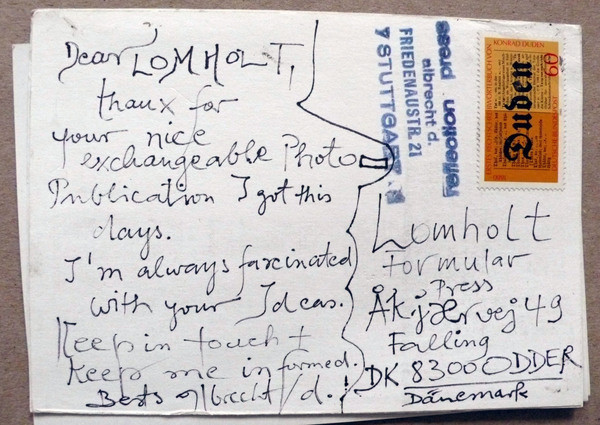 Dear LOMHOLT,
thanx for
your nice
exchangeable Photo
Publication I got this
days.
I'm always farcinated
with your Ideas.
Keep in touch +
Keep me informed.
Bests albrecht/d.!
reflection press
albrecht d.
FRIEDENAUSTR. 21
7 STUTTGART
KONRAD DUDEN
60
Duden
DEUTSCHE BUNDESPOST
Lomholt
formular
Press
Åkjærvej 49
Falling
DK 8300 ODDER
Dänemark